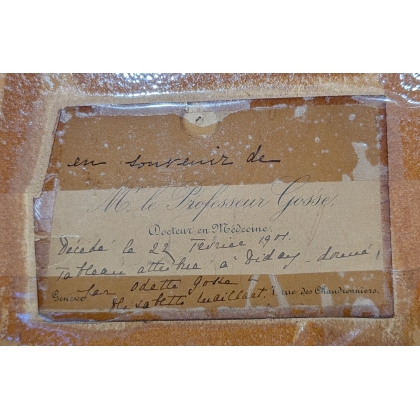 en souvenir de
Mr. le Professeur Gosse,
Docteur en Médecine.
Décédé le 22 Février 1901.
Tableau attribué à Diday donné,
par Odette Gosse
Genève. Elisabeth Maillart. 1 rue des Chaudronniers.